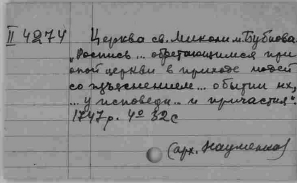 II 4274 Церква св. Миколи м. Бубнова
„Роспись... обретающимся при
оной церкви в приходе людей
со изъяснением... обытии их,
... у исповеди и причастия".
1747 р. 4º 32 с
(арх. Науменка)